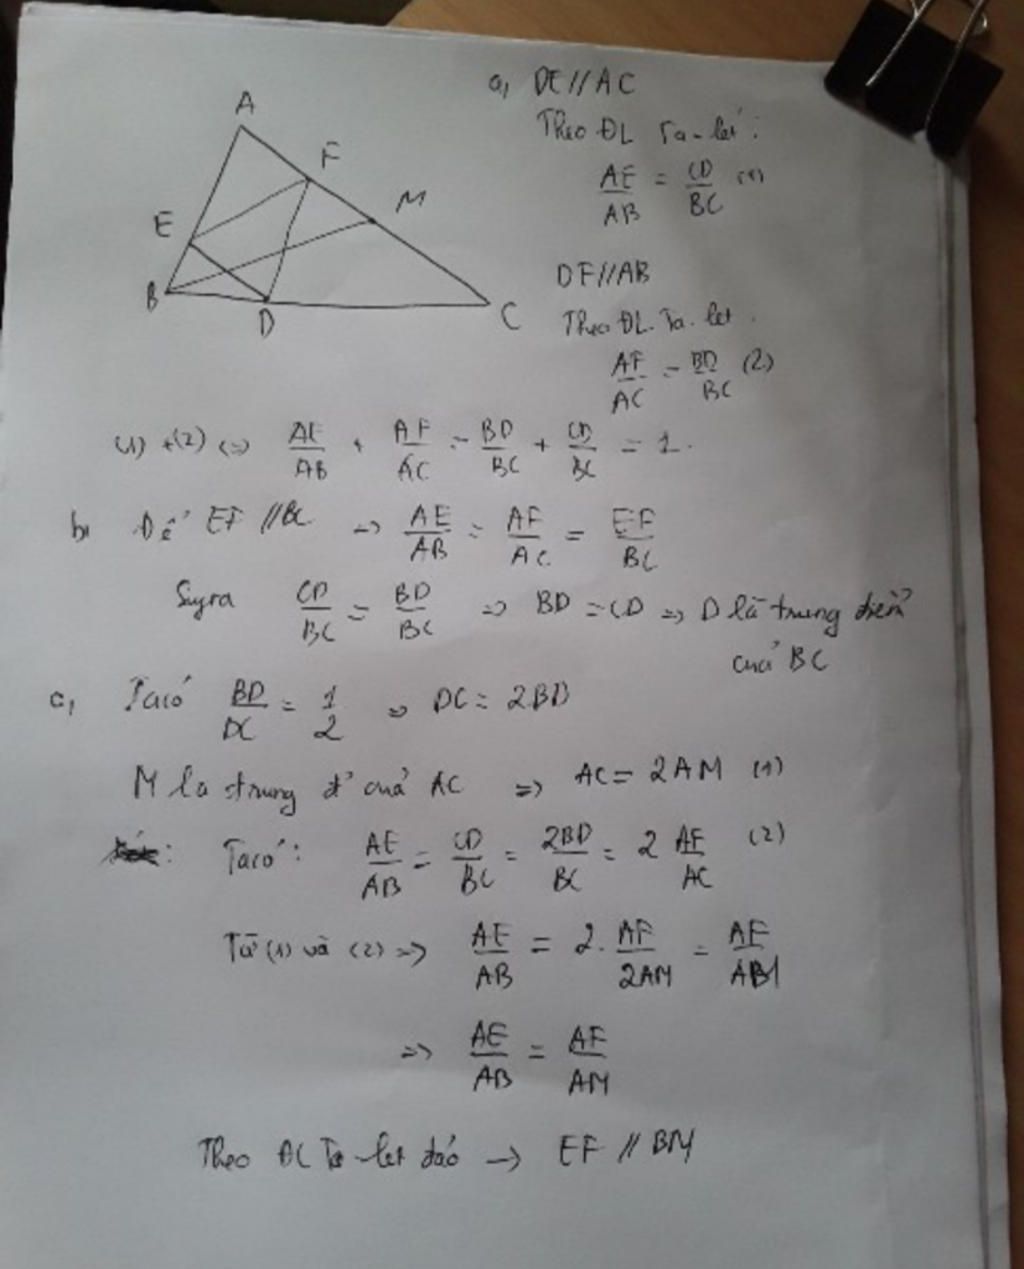 A
F
M
E
B
D
C
a, DE//AC
Theo ĐL Ta-let:
AE/AB = CD/BC (1)
DF//AB
Theo ĐL. Ta. let.
AF/AC = BD/BC (2)
(1) + (2) <=> AE/AB + AF/AC = BD/BC + CD/BC = 1.
b, Để EF //BC => AE/AB = AF/AC = EF/BC
Suy ra CD/BC = BD/BC => BD = CD => D là trung điểm
của BC
c, Ta có BD/DC = 1/2 => DC = 2BD
M là trung đ' của AC => AC = 2AM (1)
Ta có: AE/AB = CD/BC = 2BD/BC = 2 AF/AC (2)
Từ (1) và (2) => AE/AB = 2. AF/2AM = AF/AM
=> AE/AB = AF/AM
Theo ĐL Ta-let đảo -> EF // BM